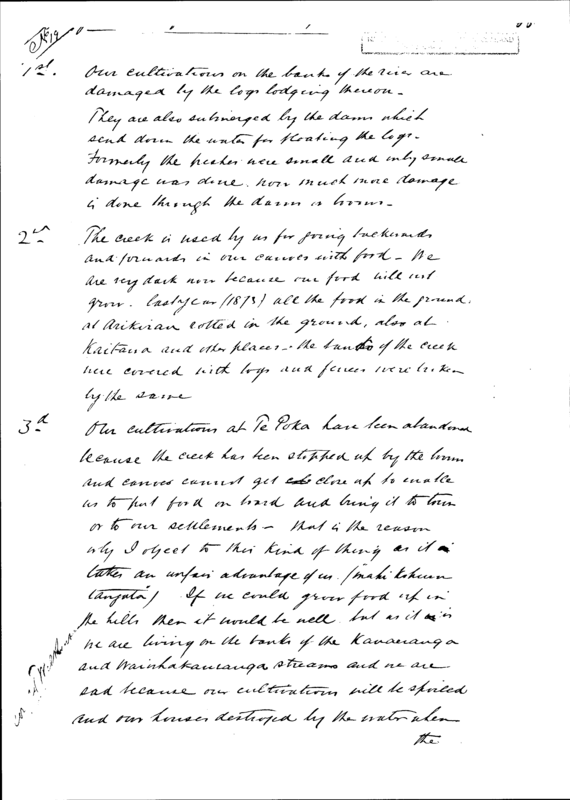 No 19
1st. Our cultivations on the banks of the river are
damaged by the logs lodging thereon -
They are also submerged by the dams which
send down the water for floating the logs -
Formerly the freshes were small and only small
damage was done. now much more damage
is done through the dams or booms -
2n The creek is used by us for going backwards
and forwards in our canoes with food - We
are very dark now because our food will not
grow. last year (1873) all the food in the ground.
at rotted in the ground, also at
Kaitana and other places - the banks of the creek
were covered with logs and fences were broken
by the same
3d Our cultivations at Te Poka have been abandoned
because the creek has been stopped up by the booms
and canoes cannot get close up to enable
us to put food on board and bring it to town
or to our settlements - that is the reason
why I object to this kind of thing as it
takes an unfair advantage of us. (mahi kohuru
tangata) If we could grow food up in
the hills then it would be well but as it is
we are living on the banks of the Kauaeranga
and streams and we are
sad because our cultivations will be spoiled
and our houses destroyed by the water when
the